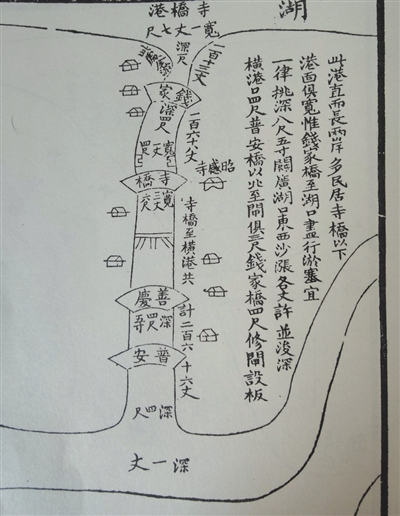 湖
此港直而長兩岸多民居寺橋以下
港面俱寬惟錢家橋至湖口盡行淤塞宜
一律挑深八尺五寸闊廣湖口東西沙漲各丈許並浚深
橫港口四尺普安橋以北至閘俱三尺錢家橋四尺修閘設板
寺橋港
寬一丈七尺
深尺
一百十三丈
錢家
深四尺
一百六十八丈
寬一丈四尺
昭感寺
寺橋
寺橋至橫港共計二百六十六丈
善慶
普安
深四尺
深一丈